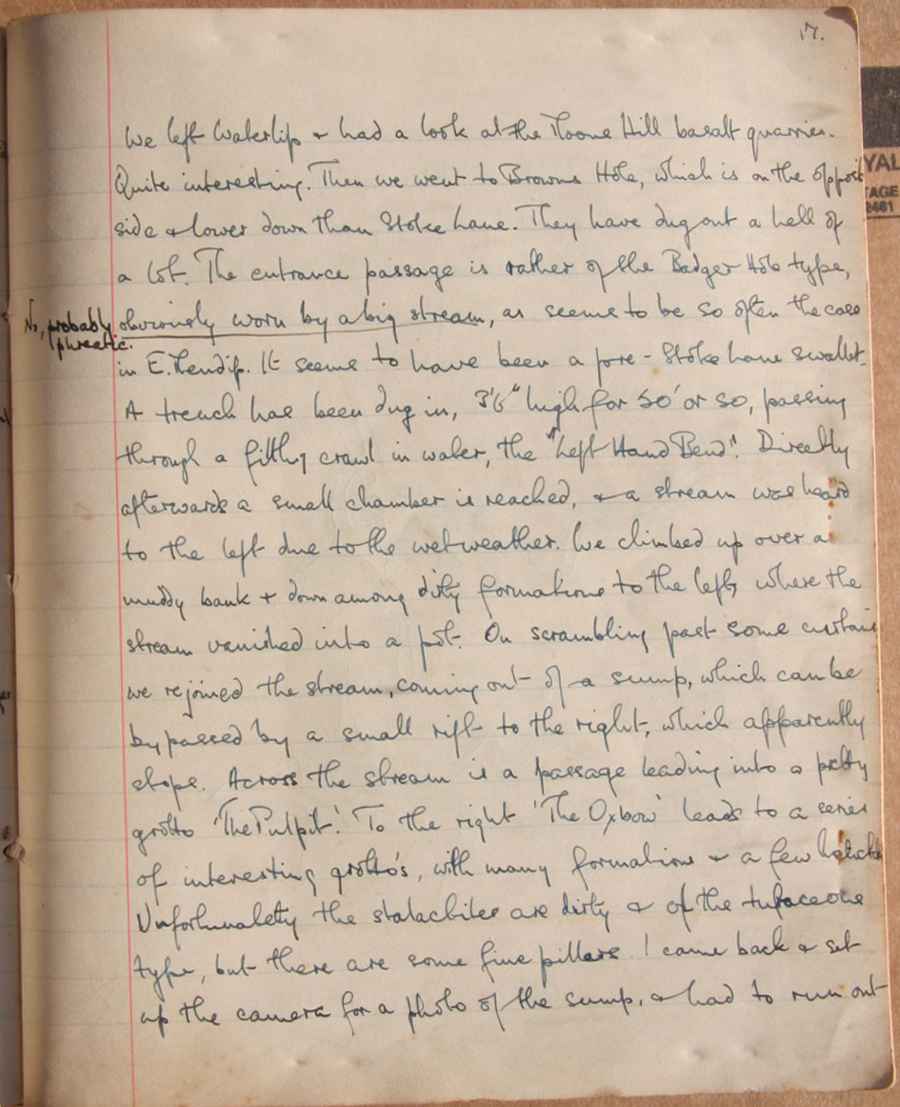 17.
We left Waterlip & had a look at the Moons Hill basalt quarries.
Quite interesting. Then we went to Browns Hole, which is on the opposite
side & lower down than Stoke Lane. They have dug out a hell of
a lot. The entrance passage is rather of the Badger Hole type,
obviously worn by a big stream, as seems to be so often the case
No, probably
phreatic.
in E. Mendip. It seems to have been a pre-Stoke Lane swallet.
A trench has been dug in, 3'6" high for 50' or so, passing
through a filthy crawl in water, the "Left Hand Bend". Directly
afterwards a small chamber is reached, & a stream was heard
to the left due to the wet weather. We climbed up over a
muddy bank & down among dirty formations to the left, where the
stream vanished into a pot. On scrambling past some curtains
we rejoined the stream, coming out of a sump, which can be
bypassed by a small rift to the right, which apparently
stops. Across the stream is a passage leading into a pretty
grotto 'The Pulpit'. To the right 'The Oxbow' leads to a series
of interesting grotto's, with many formations & a few
Unfortunately the stalactites are dirty & of the tufaceous
type, but there are some fine pillars. I came back & set
up the camera for a photo of the sump, & had to run out
YAL
TAGE
2461